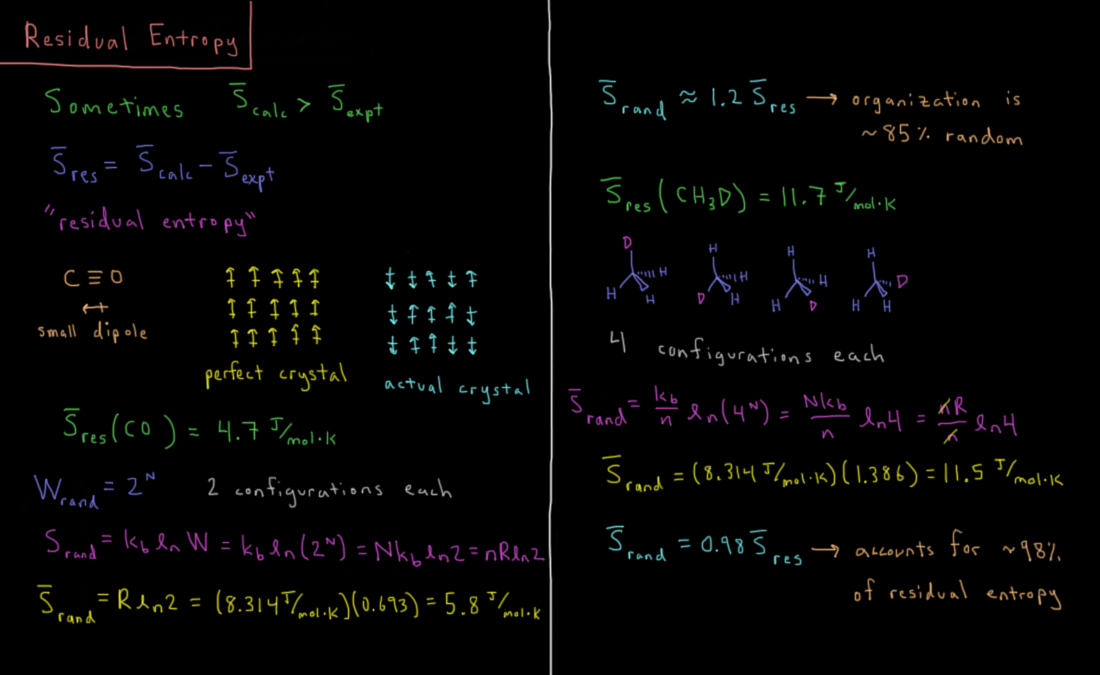 Residual Entropy
Sometimes S̄calc > S̄expt
S̄res = S̄calc − S̄expt
"residual entropy"
C≡O
small dipole
perfect crystal
actual crystal
S̄res(CO) = 4.7 J/mol·K
Wrand = 2^N 2 configurations each
Srand = kb ln W = kb ln(2^N) = Nkb ln2 = nRln2
S̄rand = R ln2 = (8.314 J/mol·K)(0.693) = 5.8 J/mol·K
S̄rand ≈ 1.2 S̄res → organization is
~85% random
S̄res(CH₃D) = 11.7 J/mol·K
D H H H
H H H H H D
H H D H H D H H
4 configurations each
S̄rand = kb/n ln(4^N) = Nkb/n ln4 = nR/n ln4
S̄rand = (8.314 J/mol·K)(1.386) = 11.5 J/mol·K
S̄rand = 0.98 S̄res → accounts for ~98%
of residual entropy